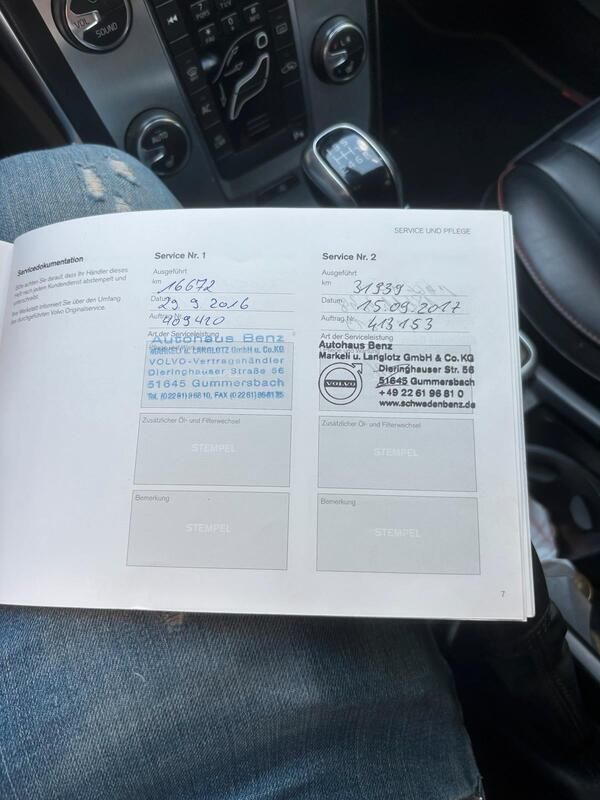 VOL
SOUND
AUTO
SERVICE UND PFLEGE
Servicedokumentation
Bitte achten Sie darauf, dass Ihr Händler dieses
Heft nach jedem Kundendienst abstempelt und
unterschreibt.
Ihre Werkstatt informiert Sie über den Umfang
des durchgeführten Volvo Originalservice.
Service Nr. 1
Ausgeführt
km 16672
Datum 29 9. 2016
Auftrag Nr. 409420
Art der Serviceleistung
Autohaus Benz
MARKELI u. LANGLOTZ GmbH u. Co.KG
VOLVO-Vertragshändler
Dieringhauser Straße 56
51645 Gummersbach
Zusätzlicher Öl- und Filterwechsel
STEMPEL
Bemerkung
STEMPEL
Service Nr. 2
Ausgeführt
km 31939
Datum 15.09.2017
Auftrag Nr. 413153
Art der Serviceleistung
Autohaus Benz
Markeli u. Langlotz GmbH & Co. KG
Dieringhauser Str. 56
51645 Gummersbach
+49 22 61 96 81 0
www.schwedenbenz.de
VOLVO
Zusätzlicher Öl- und Filterwechsel
STEMPEL
Bemerkung
STEMPEL
7